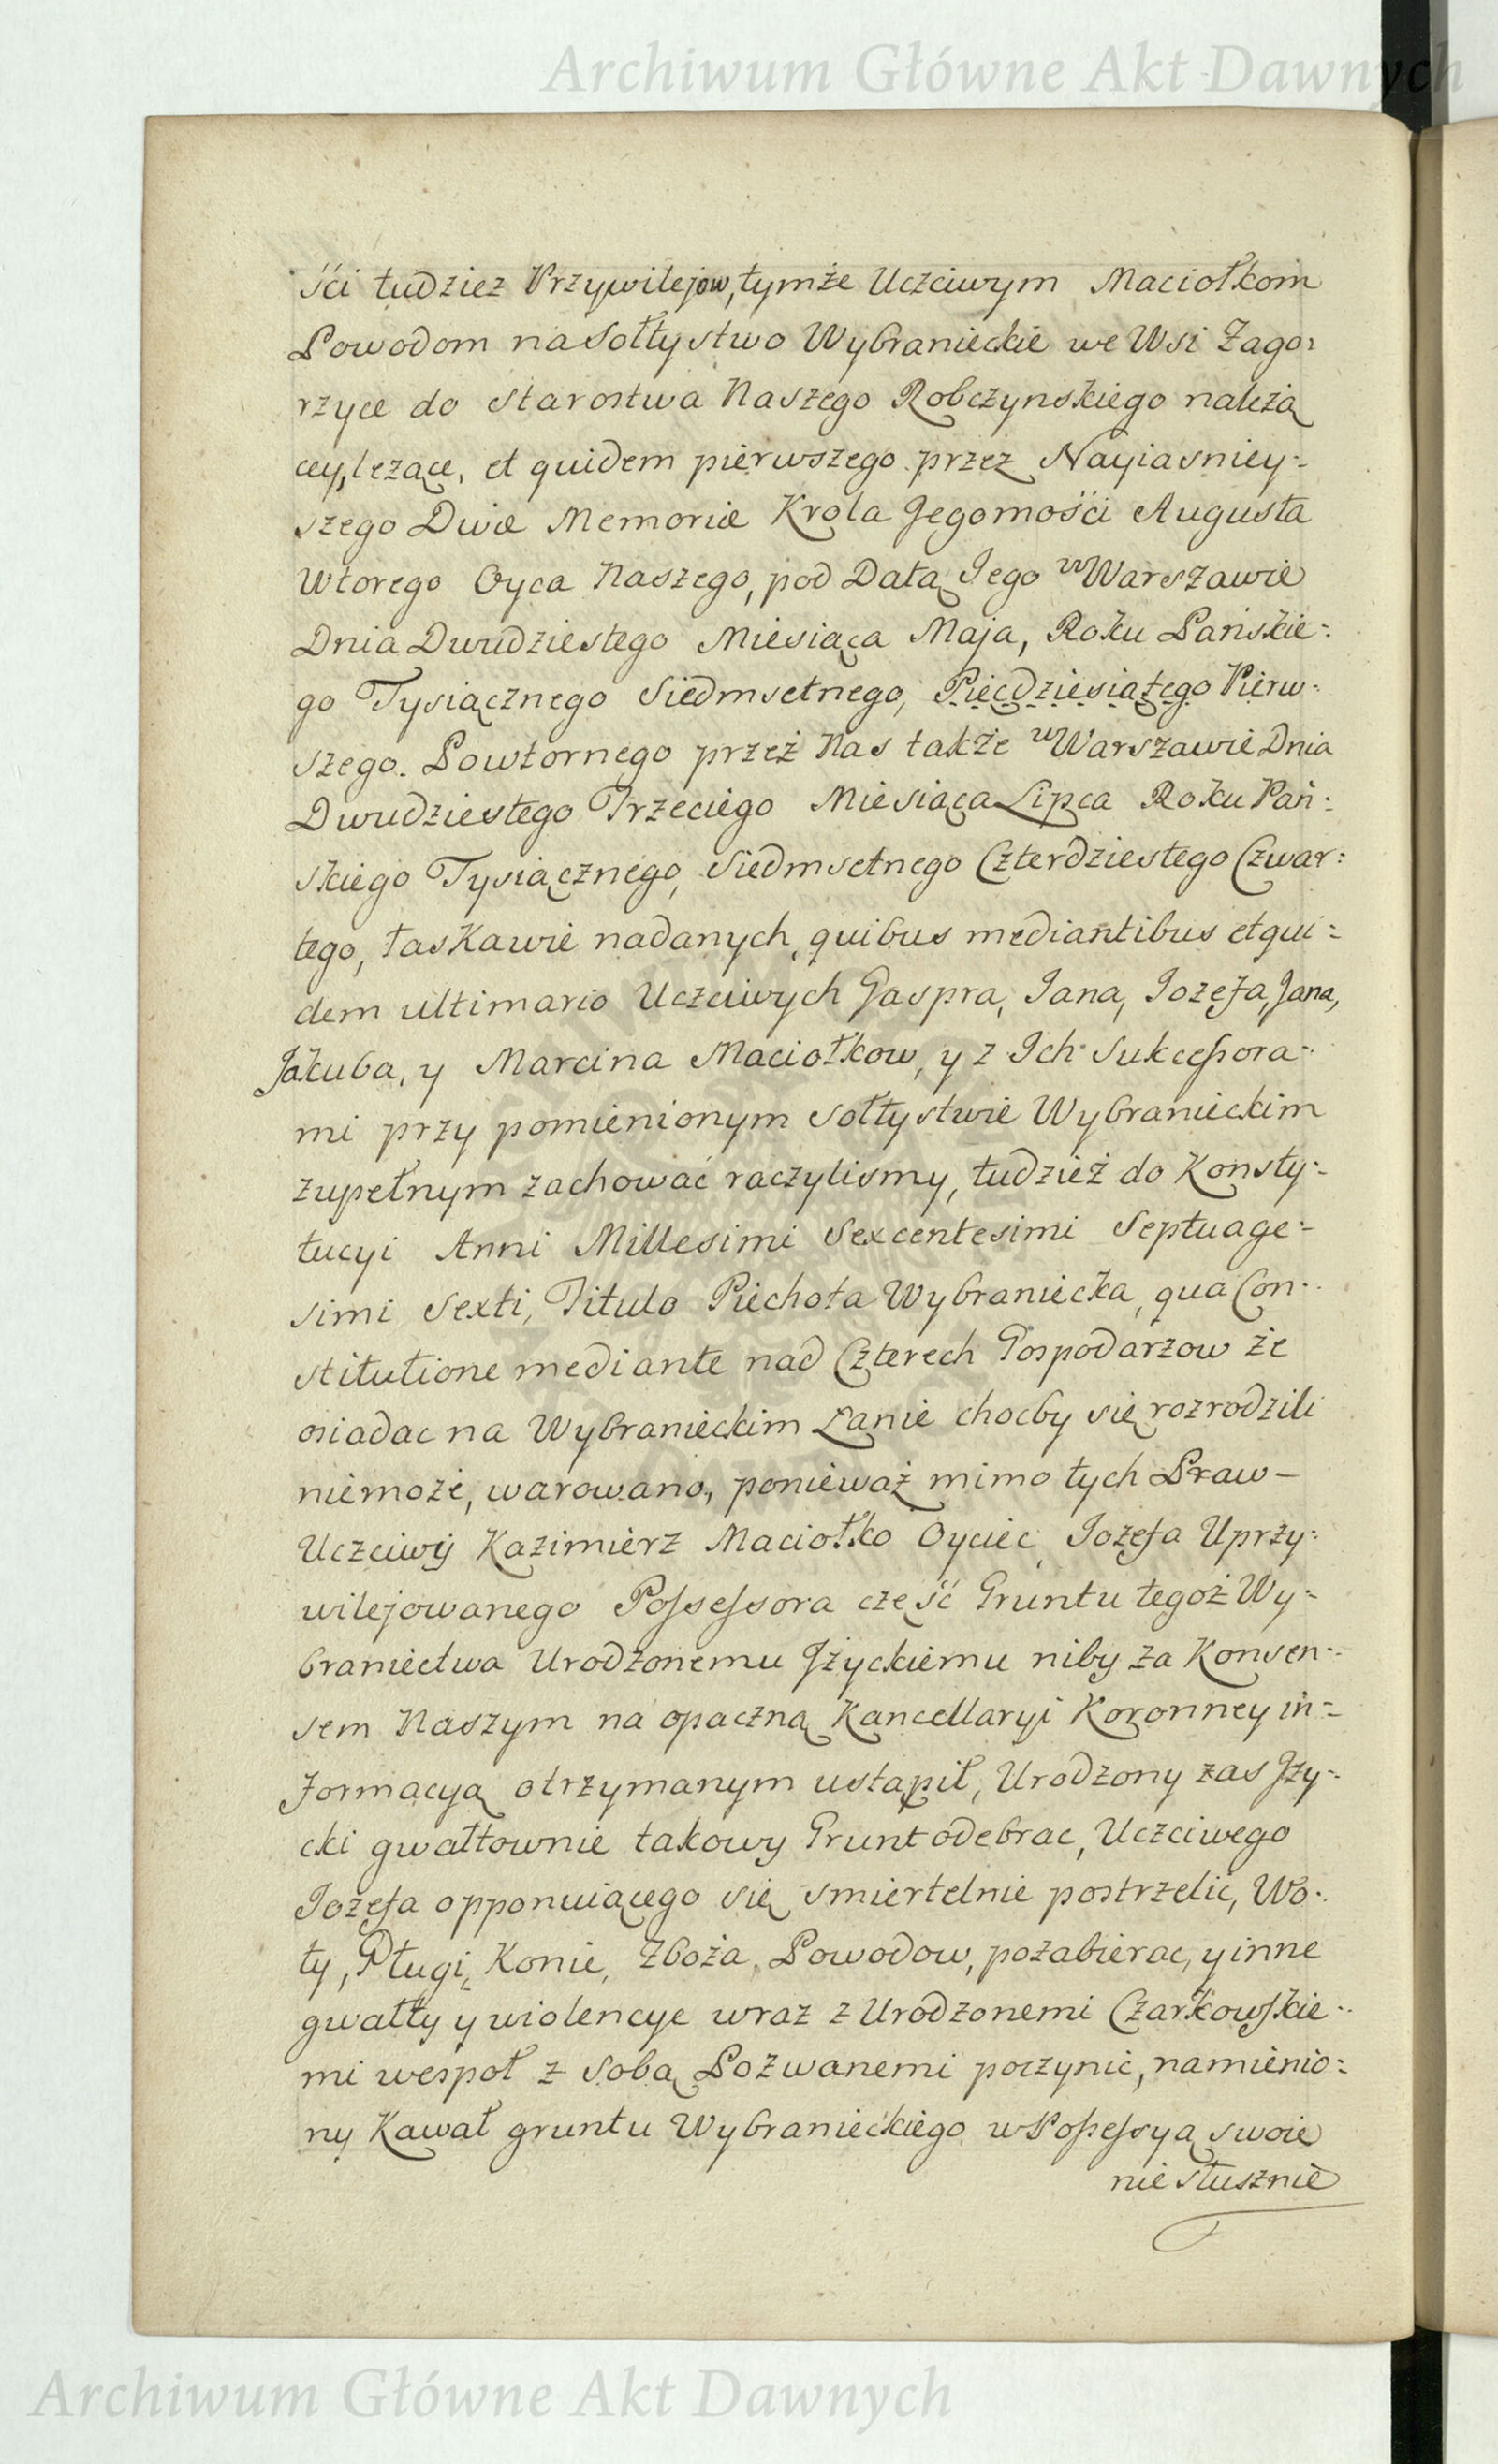 Archiwum Główne Akt Dawnych
ści tudziez Przywilejow, tymże Uczciwym Maciołkom
Powodom na Sołtystwo Wybranieckie we Wsi Zago:
rzyce do Starostwa Naszego Robczynskiego należą
cey, leżące, et quidem pierwszego przez Nayiasniey:
szego Divæ Memoriæ Krola Jegomości Augusta
Wtorego Oyca Naszego, pod Datą Jego w Warszawie
Dnia Dwudziestego Miesiąca Maja, Roku Pańskie:
go Tysiącznego Siedmsetnego, Pięcdziesiątego Pierw:
szego. Powtornego przez Nas także w Warszawie Dnia
Dwudziestego Trzeciego Miesiąca Lipca Roku Pań:
skiego Tysiącznego, Siedmsetnego Czterdziestego Czwar:
tego, łaskawie nadanych, quibus mediantibus et qui:
dem ultimario Uczciwych Gaspra, Jana, Jozefa, Jana,
Jakuba, y Marcina Maciołkow, y z Ich Sukcessora:
mi przy pomienionym Sołtystwie Wybranieckim
zupełnym zachować raczylismy, tudzież do Konsty:
tucyi Anni Millesimi Sexcentesimi Septuage:
simi Sexti, Titulo Piechota Wybraniecka, qua Con:
stitutione mediante nad Czterech Gospodarzow że
osiadac na Wybranieckim Łanie chocby się rozrodzili
niemoże, warowano, ponieważ mimo tych Praw
Uczciwy Kazimierz Maciołko Oyciec Jozefa Uprzy:
wilejowanego Possessora część Gruntu tegoż Wy:
braniectwa Urodzonemu Jżyckiemu niby za Konsen:
sem Naszym na opaczną Kancellaryi Koronney in:
formacyą otrzymanym ustąpił, Urodzony zas Jży:
cki gwałtownie takowy Grunt odebrac, Uczciwego
Jozefa opponuiącego się smiertelnie postrzelic, Wo:
ły, Pługi, Konie, Zboża, Powodow, pozabierac, y inne
gwałty y violencye wraz z Urodzonemi Czarkowskie:
mi wespoł z sobą Pozwanemi poczynic, namienio:
ny Kawał gruntu Wybranieckiego w Possessyą swoie
nie słusznie
Archiwum Główne Akt Dawnych